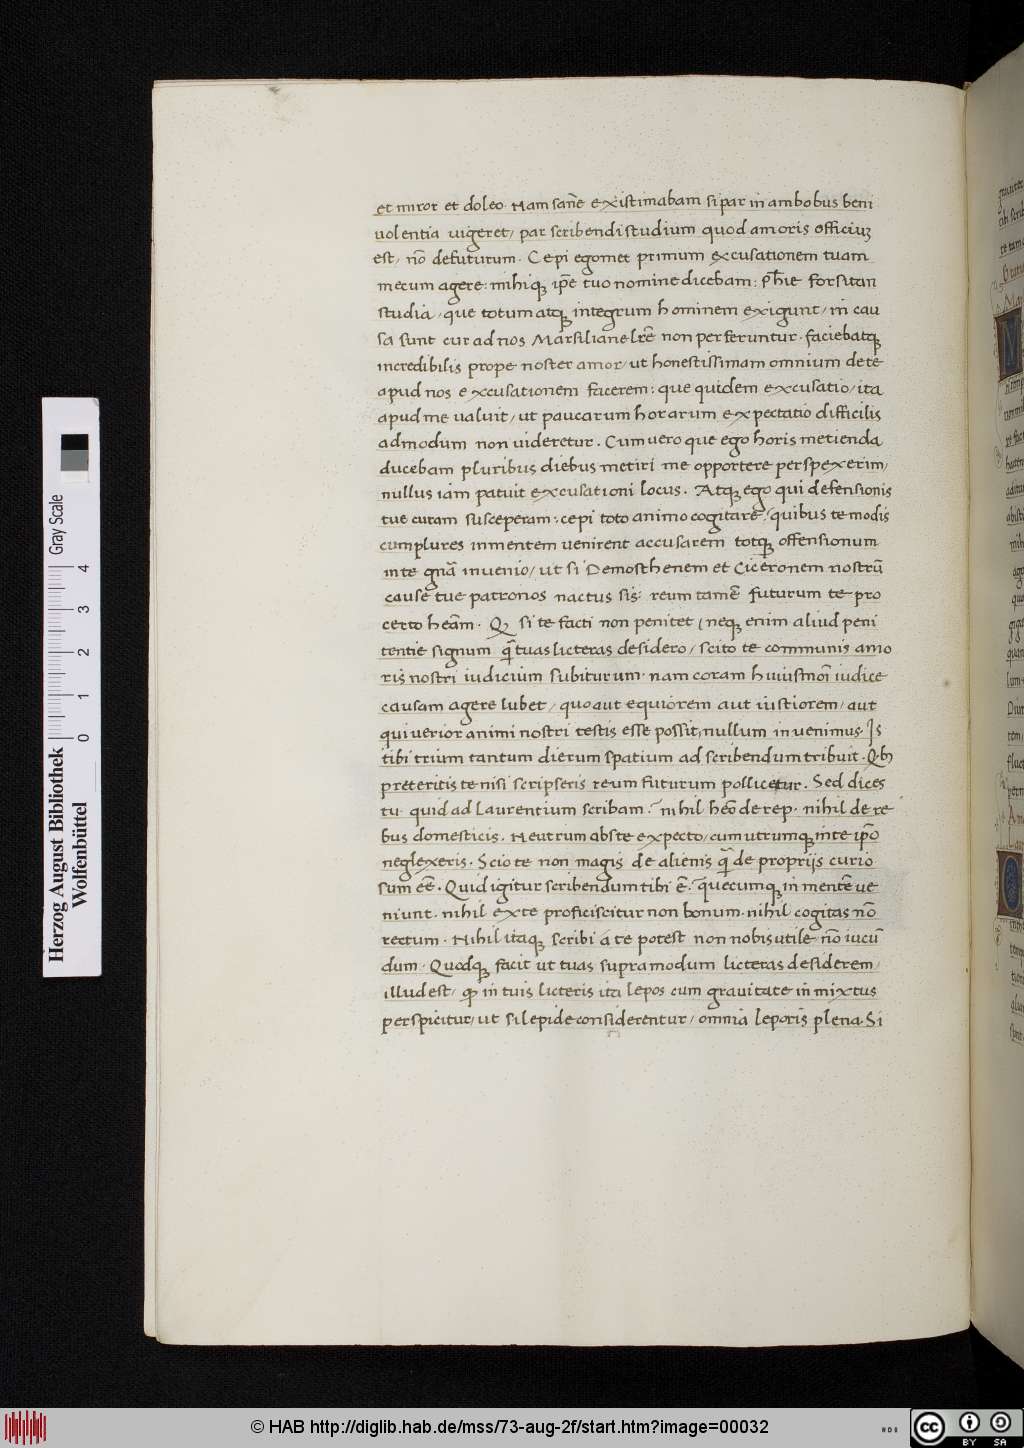 et miror et doleo. Nam sane̅ existimabam si par in ambobus beni
uolentia uigeret / par scribendi studium quod amoris officiuꝫ
est / no̅ defuturum. Cepi egomet primum excusationem tuam
mecum agere: mihiqꝫ ip̅e tuo nomine dicebam: ph̅ie forsitan
studia, que totum atqꝫ integrum hominem exigunt / in cau
sa sunt cur ad nos Marsiliane lr̅e non perferuntur. faciebatqꝫ
incredibilis prope noster amor / ut honestissimam omnium de te
apud nos excusationem facerem: que quidem excusatio / ita
apud me ualuit / ut paucarum horarum expectatio difficilis
admodum non uideretur. Cum uero que ego horis metienda
ducebam pluribus diebus metiri me opportere perspexerim /
nullus iam patuit excusationi locus. Atqꝫ ego qui defensionis
tue curam susceperam: cepi toto animo cogitare / quibus te modis
cumplures in mentem uenirent accusarem totqꝫ offensionum
in te gn̅a inuenio / ut si Demosthenem et Ciceronem nostru̅
cause tue patronos nactus sis: reum tame̅ futurum te pro
certo hea̅m. Qꝫ si te facti non penitet / neqꝫ enim aliud peni
tentie signum q̅ tuas licteras desidero / scito te communis amo
ris nostri iudicium subiturum. nam coram huiusmo̅i iudice
causam agere lubet / quo aut equiorem aut iustiorem / aut
qui uerior animi nostri testis esse possit, nullum inuenimus. Is
tibi trium tantum dierum spatium ad scribendum tribuit. Q.b̅
preteritis te nisi scripseris reum futurum pollicetur. Sed dices
tu. quid ad Laurentium scribam? nihil heo̅ de rep. nihil de re
bus domesticis. Neutrum abs te expecto / cum utrumqꝫ in te ip̅o
neglexeris. Scio te non magis de alienis q̅ de propriis curio
sum ee̅. Quid igitur scribendum tibi e̅. quecumqꝫ in mente̅ ue
niunt. nihil ex te proficiscitur non bonum. nihil cogitas no̅
rectum. Nihil itaqꝫ scribi a te potest non nobis utile no̅ iucu̅
dum. Quodqꝫ facit ut tuas supra modum licteras desiderem /
illud est / ꝙ in tuis licteris ita lepos cum grauitate inmixtus
perspicitur / ut si lepide considerentur / omnia leporis plena. Si
Herzog August Bibliothek
Wolfenbüttel
Gray Scale
0 1 2 3 4
© HAB http://diglib.hab.de/mss/73-aug-2f/start.htm?image=00032
cc BY SA